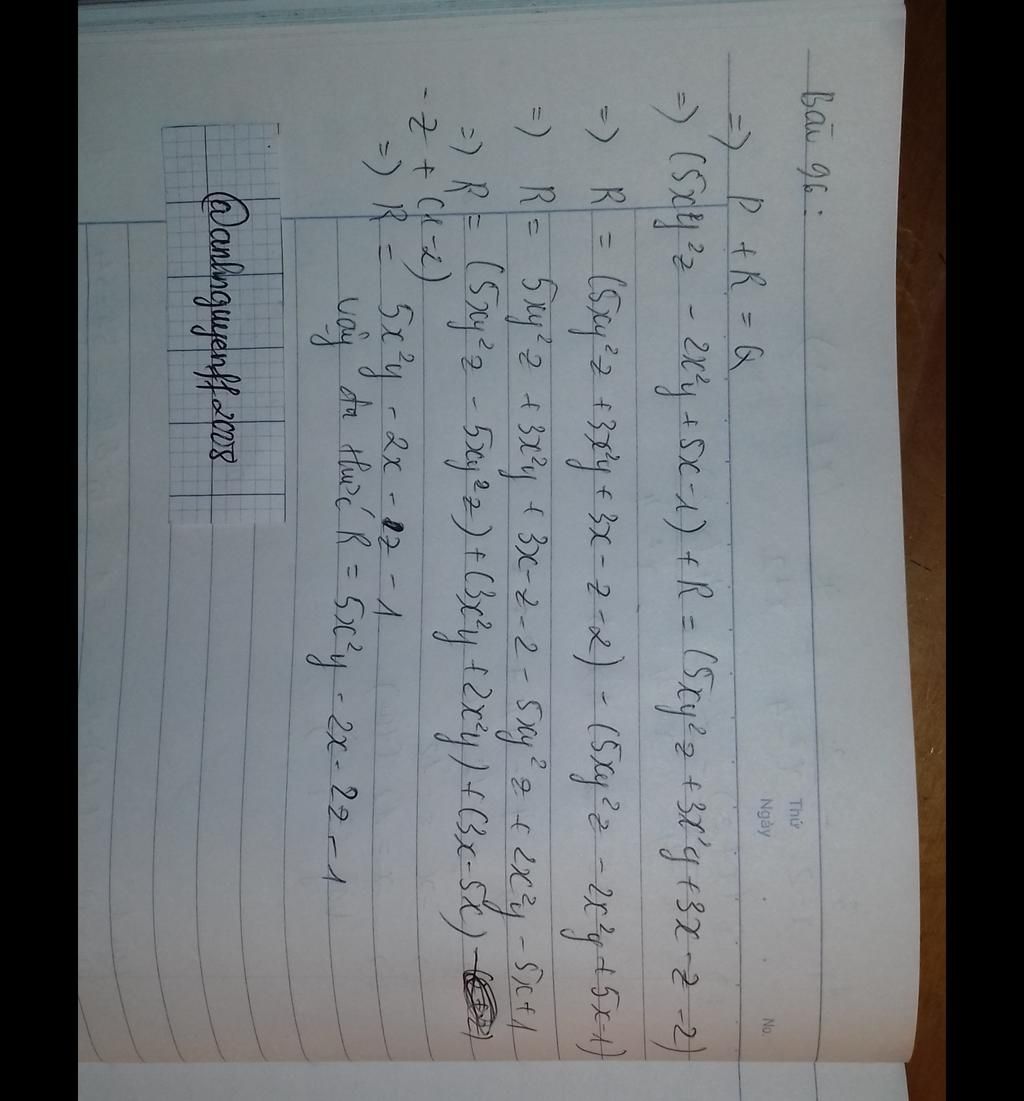 Thứ
Ngày . . No.
Bài 9b:
=) P + R = Q
=) (5xy²z - 2x²y + 5x - 1) + R = (5xy²z + 3x²y + 3x - z - 2)
=) R = (5xy²z + 3x²y + 3x - z - 2) - (5xy²z - 2x²y + 5x - 1)
=) R = 5xy²z + 3x²y + 3x - z - 2 - 5xy²z + 2x²y - 5x + 1
=) R = (5xy²z - 5xy²z) + (3x²y + 2x²y) + (3x - 5x) -
- z + (1 - 2)
=) R = 5x²y - 2x - z - 1
Vậy đa thức R = 5x²y - 2x - 2z - 1
@anhnguyenff2008